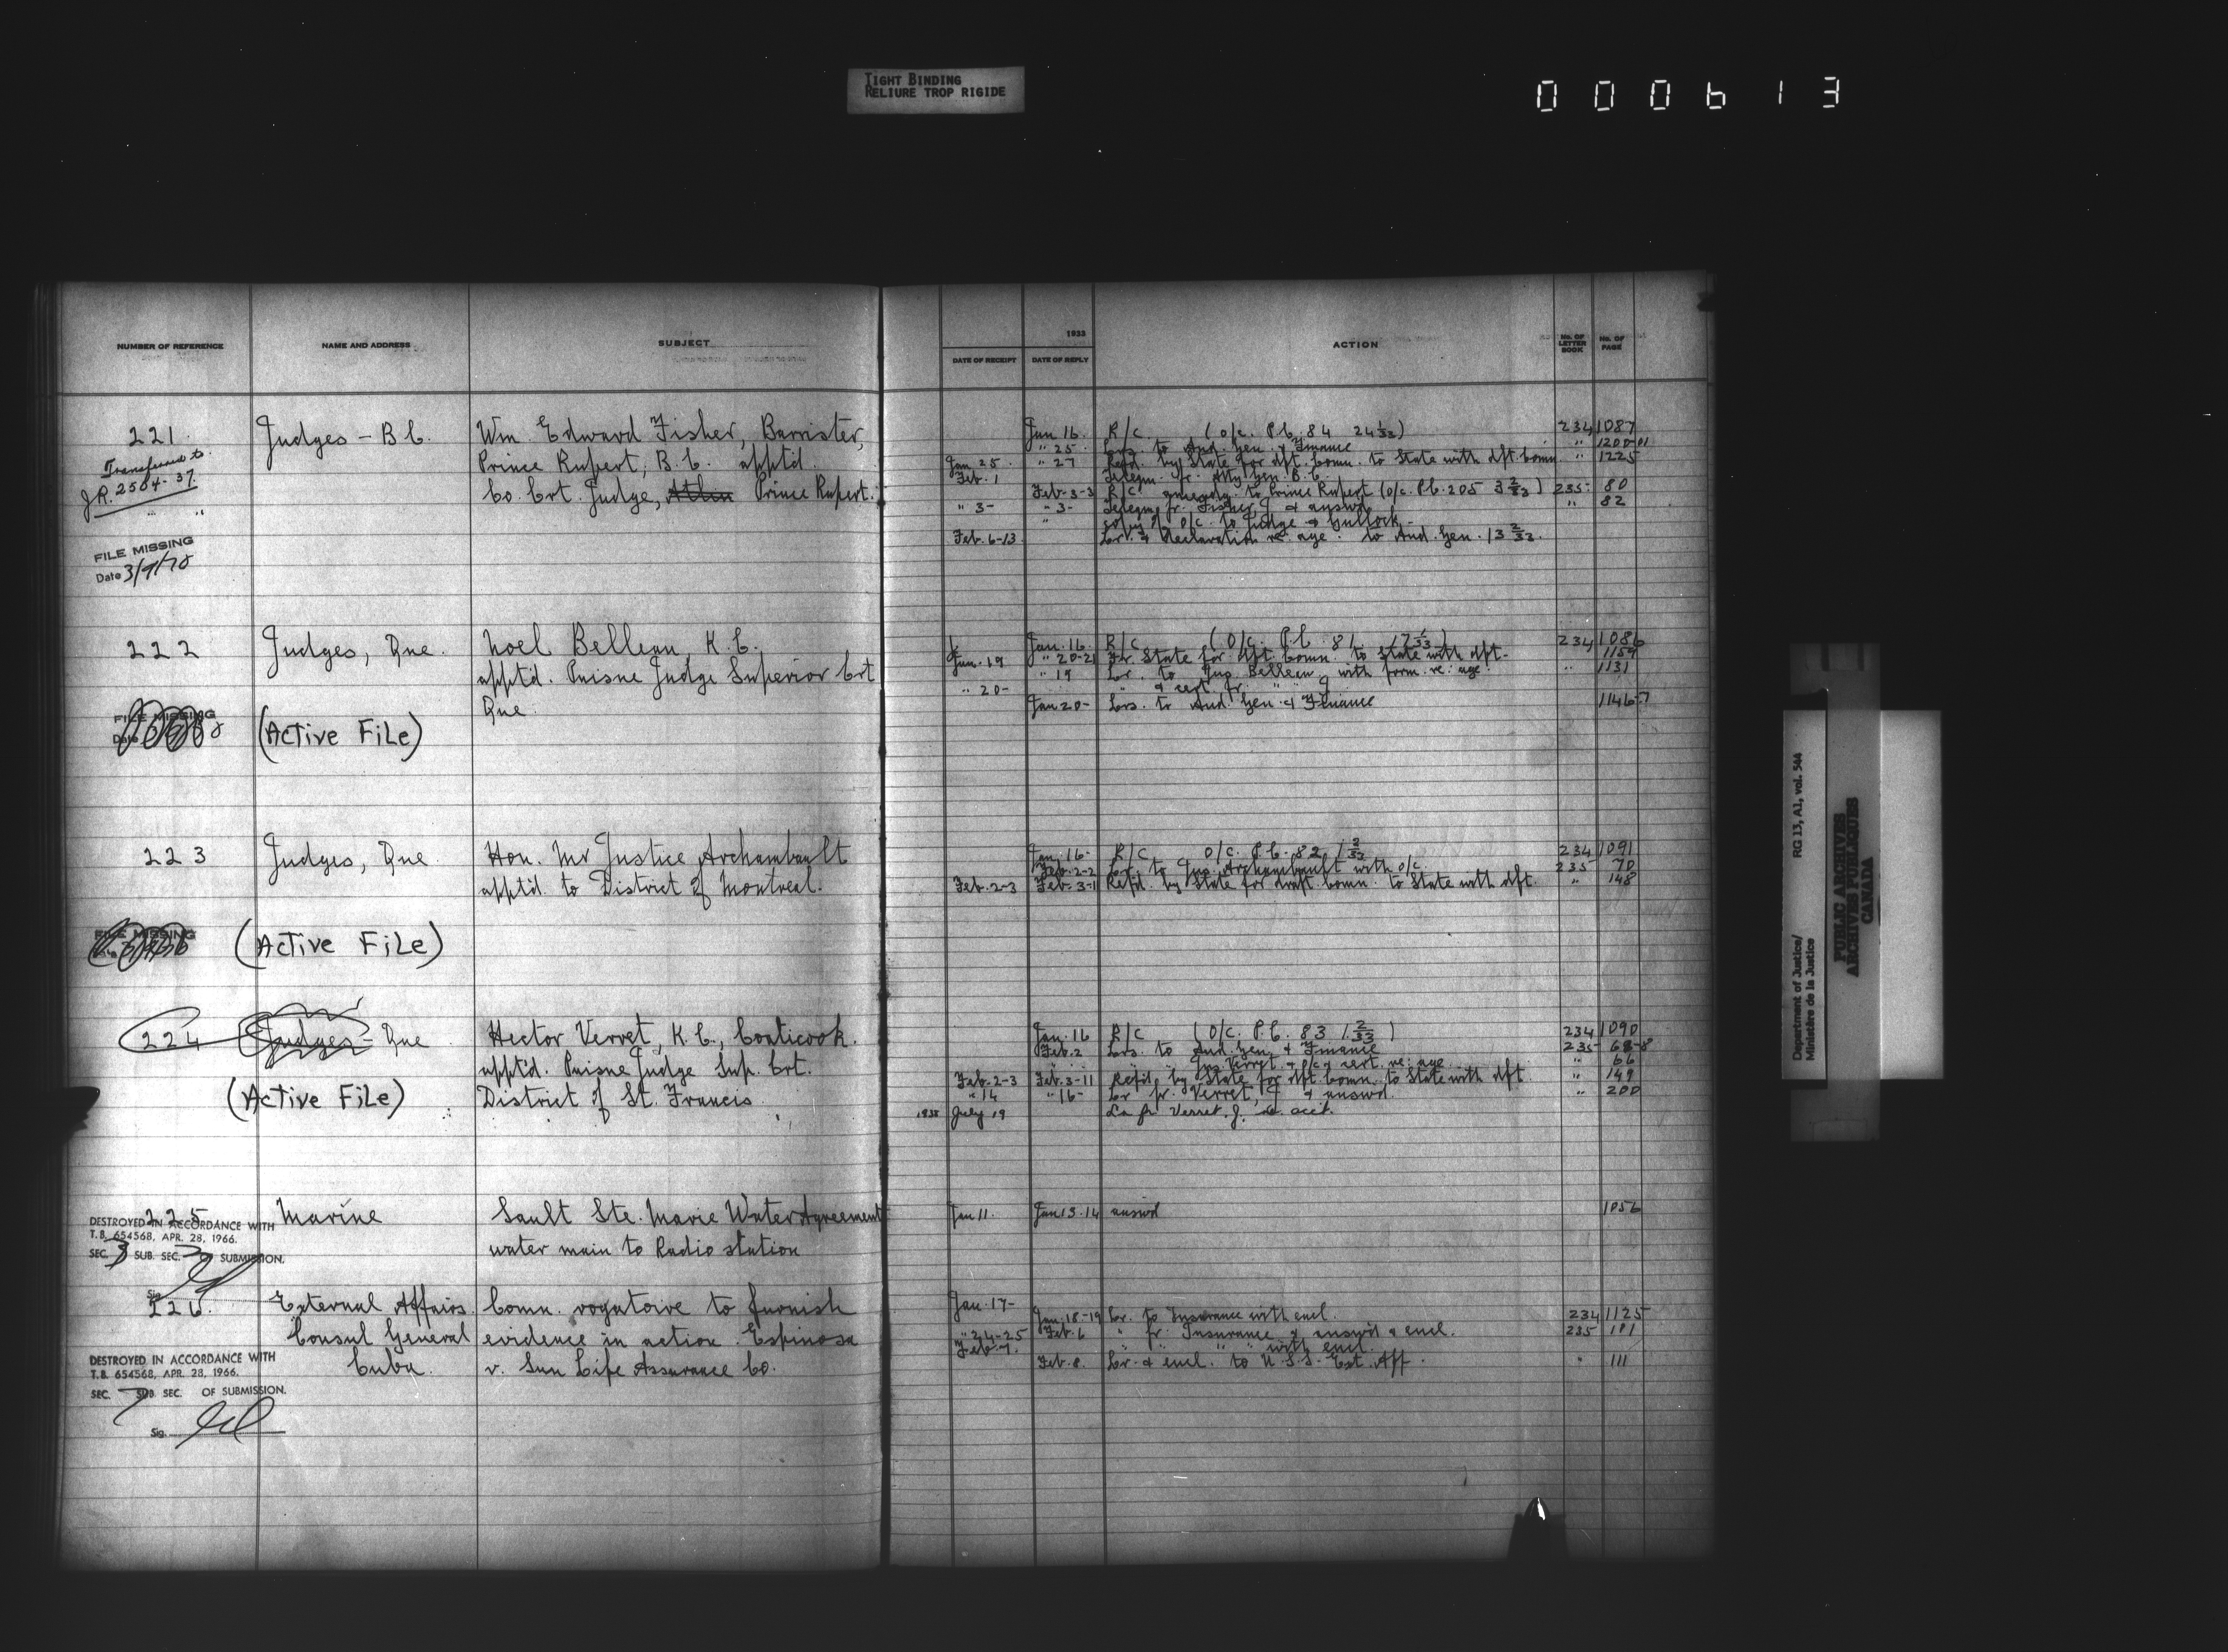 TIGHT BINDING
RELIURE TROP RIGIDE
000613
NUMBER OF REFERENCE
NAME AND ADDRESS
SUBJECT
221
Transferred to
J.R. 2504-37
FILE MISSING
Date 3/9/70
Judges - B.C.
Wm. Edward Fisher, Barrister,
Prince Rupert, B.C. apptd.
Co. Crt. Judge, Atlin Prince Rupert.
222
FILE MISSING
Judges, Que.
(Active File)
Noel Belleau, K.C.
apptd. Puisne Judge Superior Crt
Que.
223
FILE MISSING
Judges, Que
(Active File)
Hon. Mr Justice Archambault
apptd. to District of Montreal.
224
Judges - Que
(Active File)
Hector Verret, K.C., Coaticook.
apptd. Puisne Judge Sup. Crt.
District of St. Francis
225
DESTROYED IN ACCORDANCE WITH
T.B. 654568, APR. 28, 1966.
SEC. 3 SUB. SEC. SUBMISSION.
Sig.
Marine
Sault Ste. Marie Water Agreement
water main to Radio station
226.
DESTROYED IN ACCORDANCE WITH
T.B. 654568, APR. 28, 1966.
SEC. 7 SUB. SEC. OF SUBMISSION.
Sig.
External Affairs.
Consul General
Cuba.
Comn. rogatoire to furnish
evidence in action. Espinosa
v. Sun Life Assurance Co.
1933
DATE OF RECEIPT
DATE OF REPLY
ACTION
No. OF LETTER BOOK
No. OF PAGE
Jan 16. R/C (O/C. P.C. 84 24 1/33) 234 1087
" 25 Lrs. to Aud. Gen. & Finance " 1200-01
Jan 25. " 27 Refd. by State for dft. Comn. to State with dft. Comn. " 1225
Feb. 1 Telegm. fr. Atty Gen. B.C.
Feb-3-3 R/C to Prince Rupert (O/C. P.C. 205 3 2/33) 235 80
" 3- " 3- Telegm. fr. Fisher J & answd " 82
" copy of O/C. to Judge &
Feb. 6-13 Lr. & Declaration re: age. to Aud. Gen. 13 2/33.
Jan. 16 R/C (O/C. P.C. 81 17 1/33) 234 1086
Jan. 19 " 20-21 Fr. State for dft. Comn. to State with dft. 1159
" 19 Lr. to Jus. Belleau with form re: age. " 1131
" 20- " & cert. fr. " "
Jan 20- Lrs. to Aud. Gen. & Finance 1146-7
Jan. 16- R/C O/C. P.C. 82 1 2/33 234 1091
Feb. 2-2 Lr. to Jus. Archambault with O/C. 235 70
Feb. 2-3 Feb. 3-11 Refd. by State for draft Comn. to State with dft. " 148
Jan. 16 R/C (O/C. P.C. 83 1 2/33) 234 1090
Feb. 2 Lrs. to Aud. Gen. & Finance 235 68-8
" " Jus Verret & O/C & cert. re: age " 66
Feb. 2-3 Feb. 3-11 Refd. by State for dft. Comn. to State with dft. " 149
" 14 " 16- Lr fr. Verret, J & answd. " 200
1938 July 19 Lr fr Verret. J. re acct.
Jan 11. Jan 13-14 answd 1056
Jan. 17-
Jan. 18-19 Lr. to Insurance with encl. 234 1125
" 24-25 Feb. 6 " fr. Insurance & answd & encl. 235 101
Feb. 7. " " " with encl.
Feb. 8. Lr. & encl. to U.S.S. Ext. Aff. " 111
Department of Justice/
Ministère de la Justice
RG 13, A1, vol. 544
PUBLIC ARCHIVES
ARCHIVES PUBLIQUES
CANADA